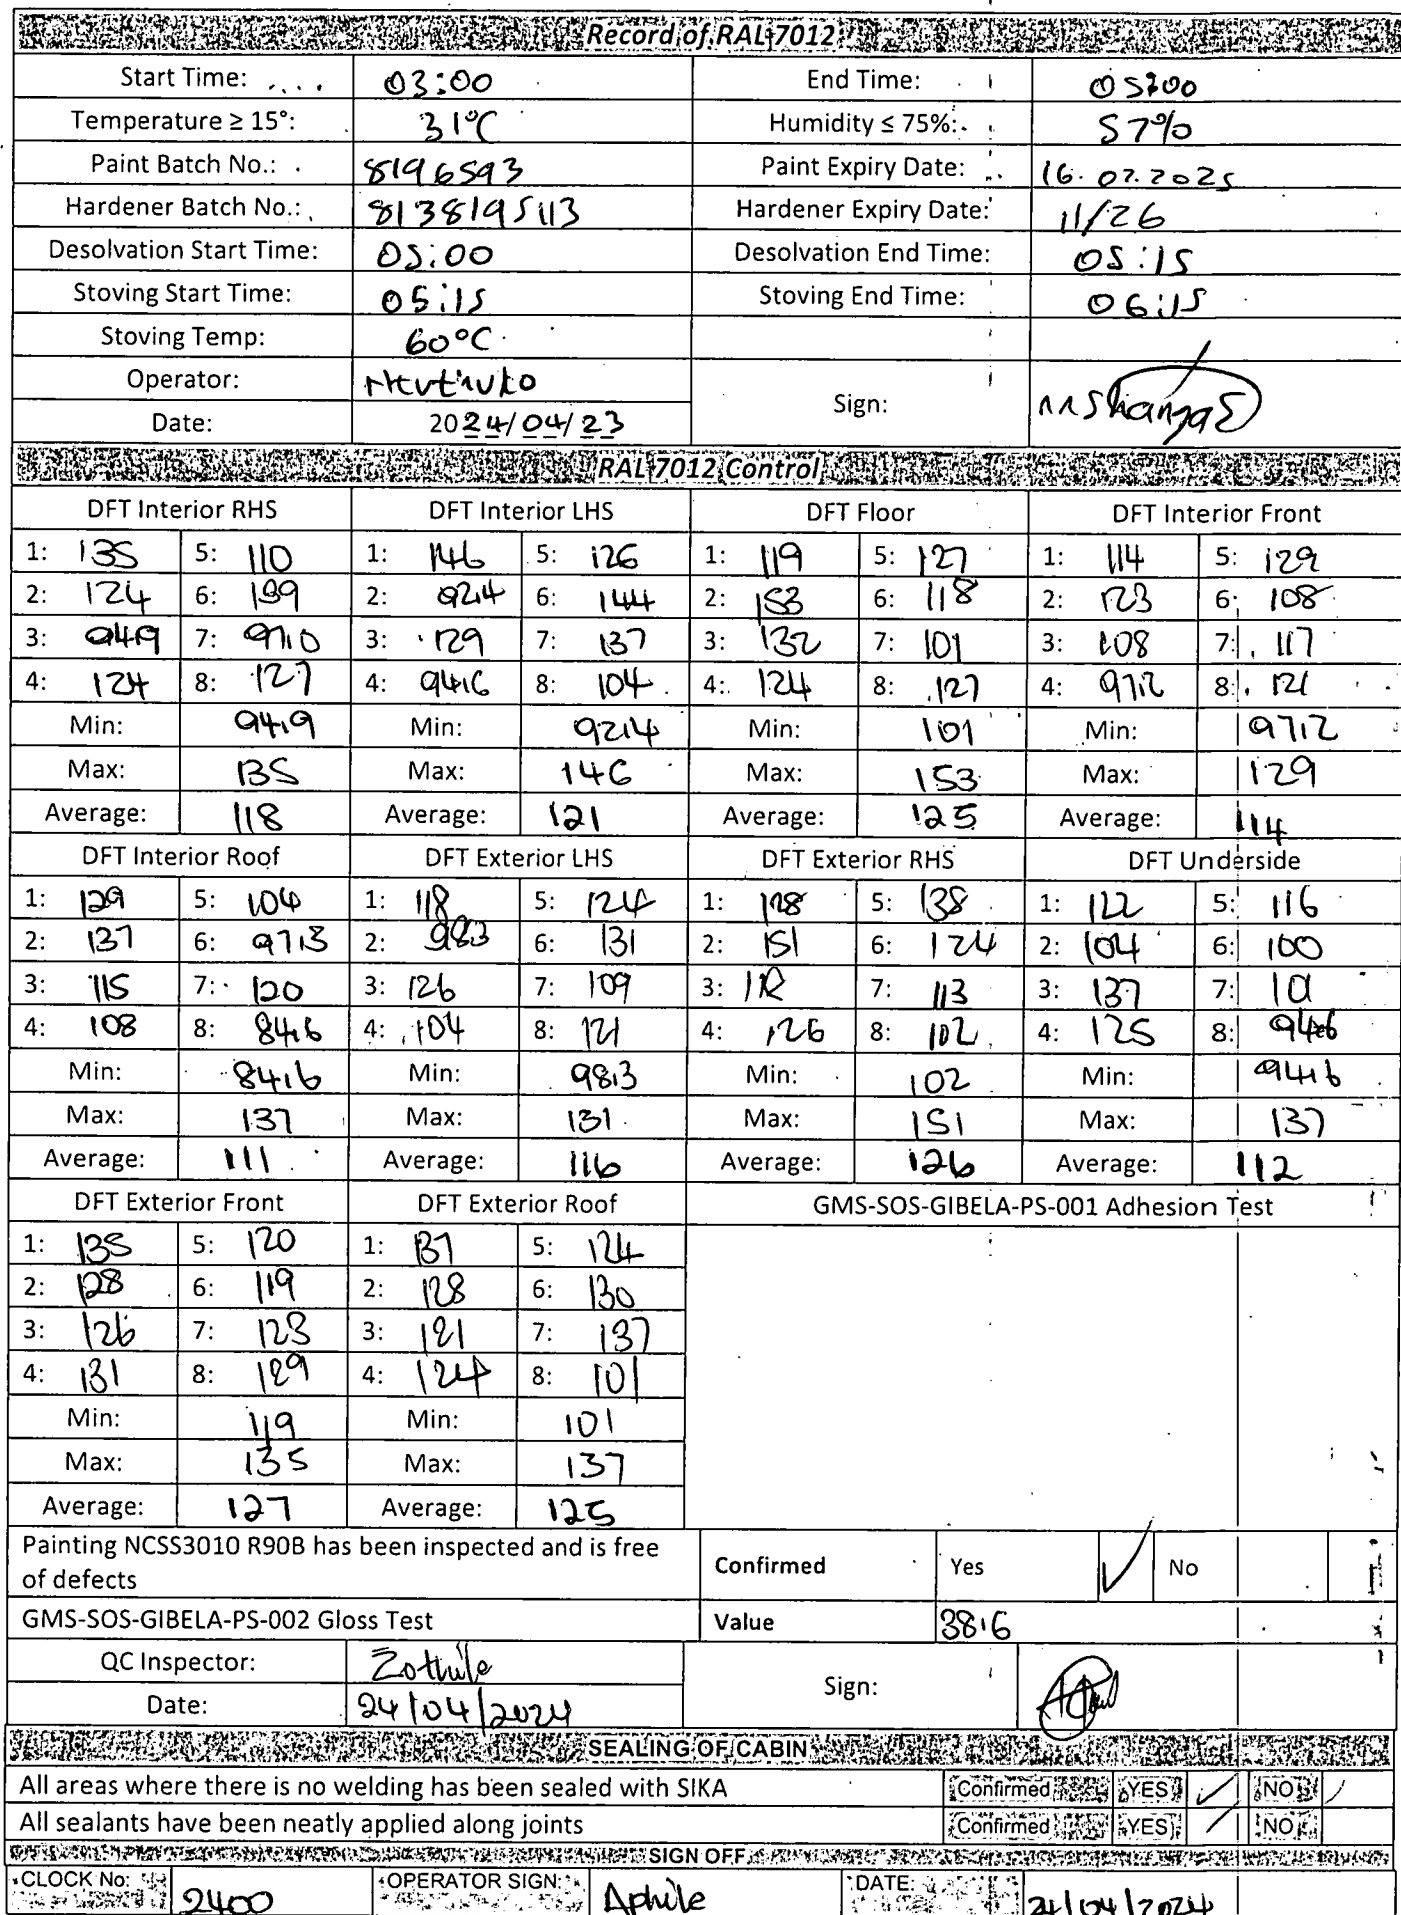 Record of RAL 7012
Start Time: 03:00 End Time: 05:00
Temperature ≥ 15°: 31°C Humidity ≤ 75%: 57%
Paint Batch No.: 8196593 Paint Expiry Date: 16.07.2025
Hardener Batch No.: 8138195113 Hardener Expiry Date: 11/26
Desolvation Start Time: 05:00 Desolvation End Time: 05:15
Stoving Start Time: 05:15 Stoving End Time: 06:15
Stoving Temp: 60°C
Operator: Sign:
Date: 2024/04/23
RAL 7012 Control
DFT Interior RHS DFT Interior LHS DFT Floor DFT Interior Front
1: 135 5: 110 1: 146 5: 126 1: 119 5: 127 1: 114 5: 129
2: 124 6: 2: 92,4 6: 144 2: 153 6: 118 2: 123 6: 108
3: 94,9 7: 97,0 3: 129 7: 137 3: 132 7: 101 3: 108 7: 117
4: 124 8: 127 4: 94,6 8: 104 4: 124 8: 127 4: 97,2 8: 121
Min: 94,9 Min: 92,4 Min: 101 Min: 97,2
Max: 135 Max: 146 Max: 153 Max: 129
Average: 118 Average: 121 Average: 125 Average: 114
DFT Interior Roof DFT Exterior LHS DFT Exterior RHS DFT Underside
1: 129 5: 104 1: 118 5: 124 1: 128 5: 138 1: 122 5: 116
2: 137 6: 97,3 2: 98,3 6: 131 2: 151 6: 124 2: 104 6: 100
3: 115 7: 120 3: 126 7: 109 3: 112 7: 113 3: 137 7: 101
4: 108 8: 84,6 4: 104 8: 121 4: 126 8: 102 4: 125 8: 94,6
Min: 84,6 Min: 98,3 Min: 102 Min: 94,6
Max: 137 Max: 131 Max: 151 Max: 137
Average: 111 Average: 116 Average: 126 Average: 112
DFT Exterior Front DFT Exterior Roof GMS-SOS-GIBELA-PS-001 Adhesion Test
1: 135 5: 120 1: 137 5: 124
2: 128 6: 119 2: 128 6: 130
3: 126 7: 123 3: 121 7: 137
4: 131 8: 129 4: 124 8: 101
Min: 119 Min: 101
Max: 135 Max: 137
Average: 127 Average: 125
Painting NCSS3010 R90B has been inspected and is free of defects Confirmed Yes ✓ No
GMS-SOS-GIBELA-PS-002 Gloss Test Value 38,6
QC Inspector: Zothile Sign:
Date: 24/04/2024
SEALING OF CABIN
All areas where there is no welding has been sealed with SIKA Confirmed YES ✓ NO
All sealants have been neatly applied along joints Confirmed YES NO
SIGN OFF
CLOCK No: 2400 OPERATOR SIGN: Aphile DATE: 24/04/2024